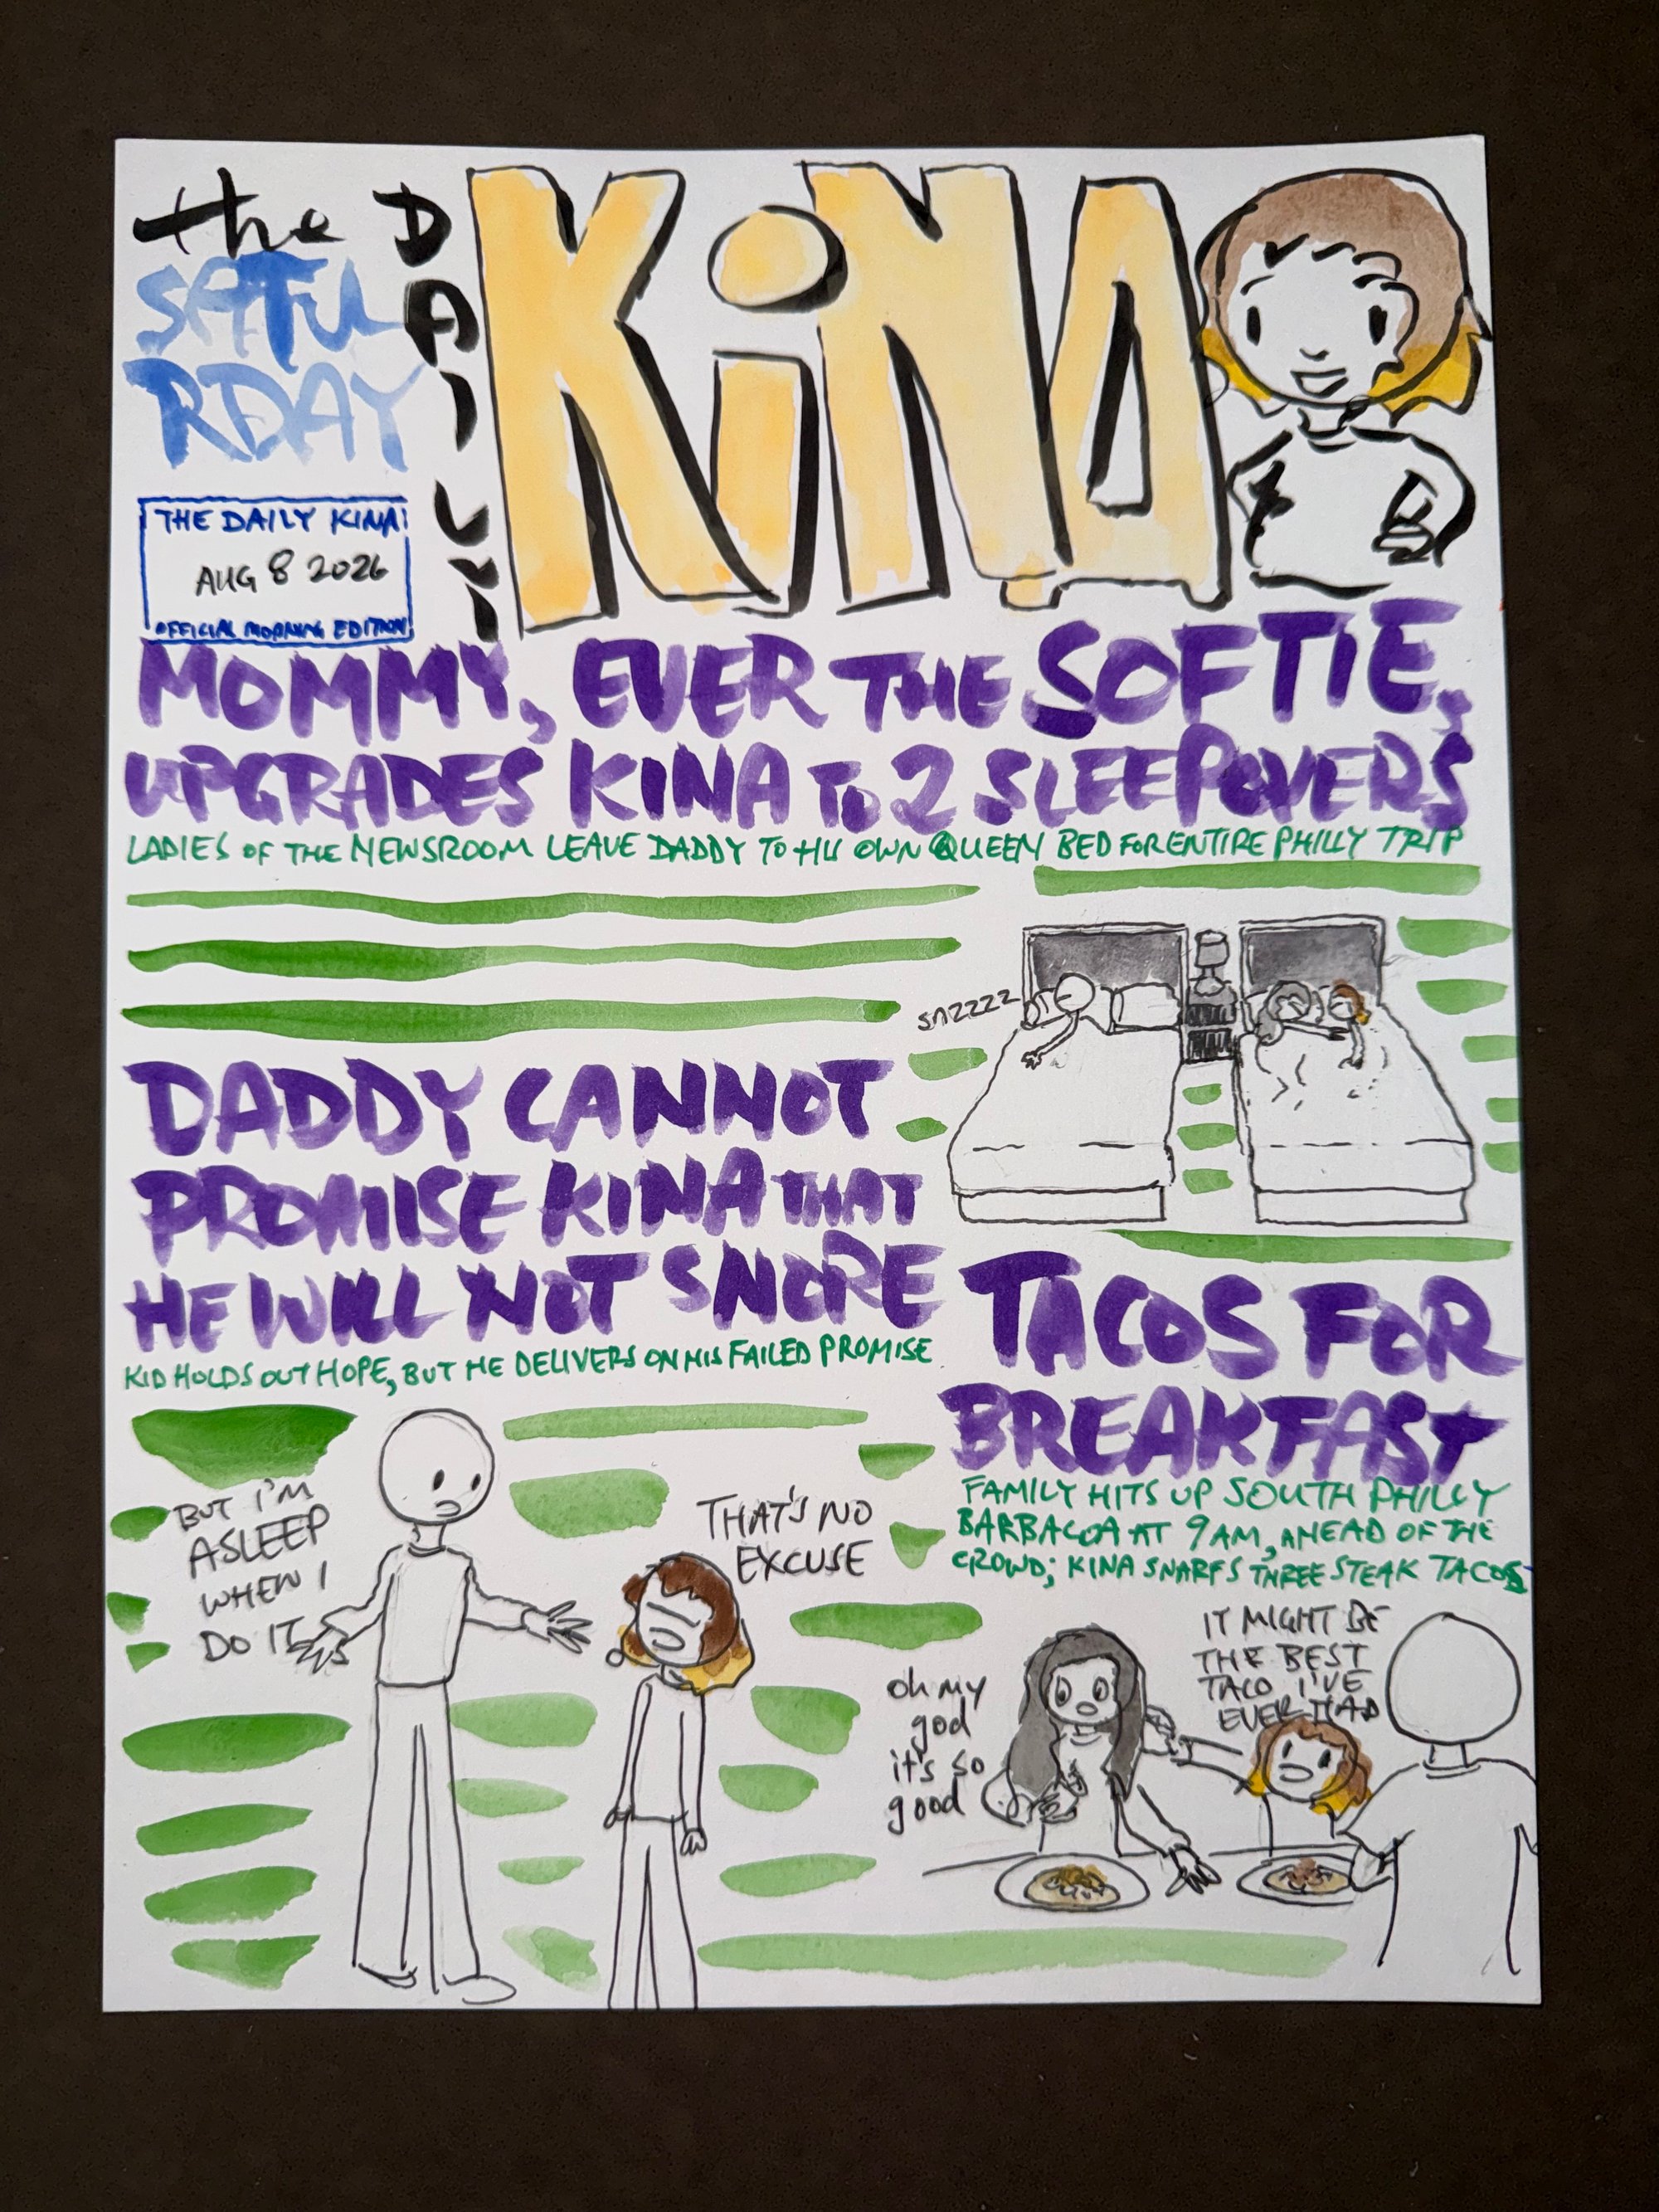 the
SATU
RDAY
DAILY
KiNA
THE DAILY KINA
AUG 8 2026
OFFICIAL MORNING EDITION
MOMMY, EVER THE SOFTIE,
UPGRADES KINA TO 2 SLEEPOVERS
LADIES OF THE NEWSROOM LEAVE DADDY TO HIS OWN QUEEN BED FOR ENTIRE PHILLY TRIP
snzzzz
DADDY CANNOT
PROMISE KINA THAT
HE WILL NOT SNORE
KID HOLDS OUT HOPE, BUT HE DELIVERS ON HIS FAILED PROMISE
BUT I'M
ASLEEP
WHEN I
DO IT
THAT'S NO
EXCUSE
TACOS FOR
BREAKFAST
FAMILY HITS UP SOUTH PHILLY
BARBACOA AT 9AM, AHEAD OF THE
CROWD; KINA SNARFS THREE STEAK TACOS
oh my
god
it's so
good
IT MIGHT BE
THE BEST
TACO I'VE
EVER HAD